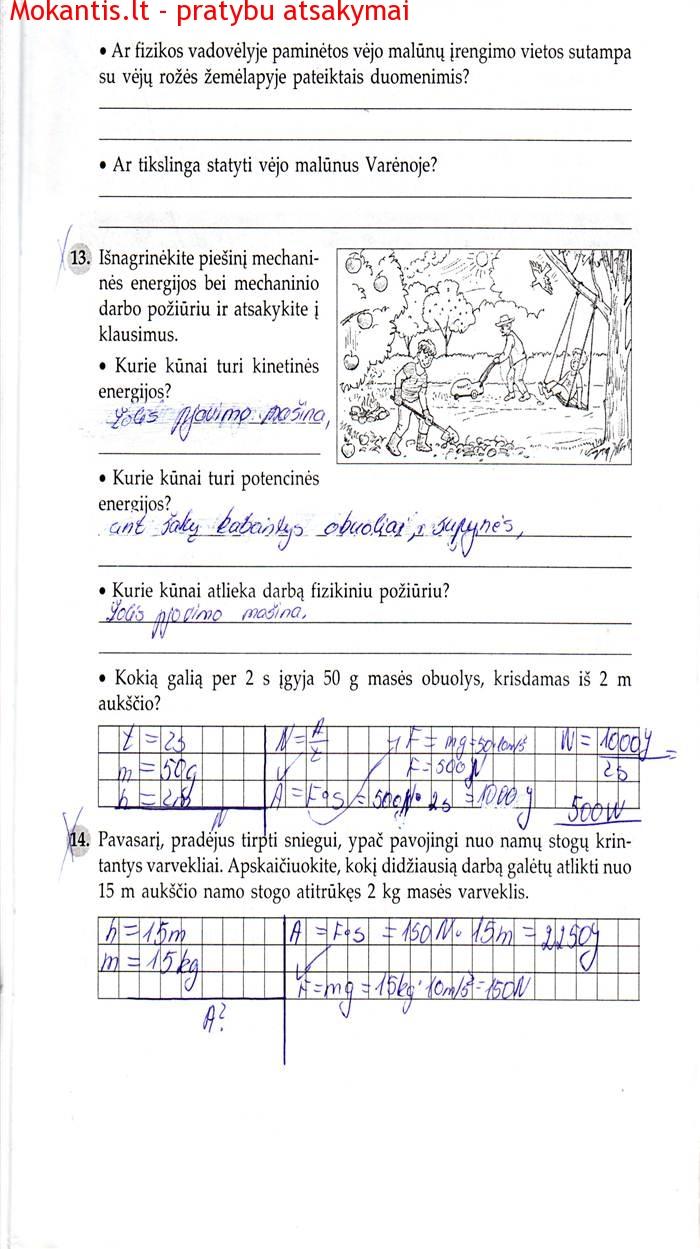 Mokantis.lt - pratybu atsakymai
• Ar fizikos vadovėlyje paminėtos vėjo malūnų įrengimo vietos sutampa
su vėjų rožės žemėlapyje pateiktais duomenimis?
• Ar tikslinga statyti vėjo malūnus Varėnoje?
13. Išnagrinėkite piešinį mechani-
nės energijos bei mechaninio
darbo požiūriu ir atsakykite į
klausimus.
• Kurie kūnai turi kinetinės
energijos?
žolės pjovimo mašina,
• Kurie kūnai turi potencinės
energijos?
ant šakų kabantys obuoliai, supynės,
• Kurie kūnai atlieka darbą fizikiniu požiūriu?
žolės pjovimo mašina.
• Kokią galią per 2 s įgyja 50 g masės obuolys, krisdamas iš 2 m
aukščio?
t = 2s N = A/t F = mg = 50·10m/s N = 1000J =
m = 50g F = 500N 2s
h = 2m A = F·s = 500N· 2s = 1000J 500W
N
14. Pavasarį, pradėjus tirpti sniegui, ypač pavojingi nuo namų stogų krin-
tantys varvekliai. Apskaičiuokite, kokį didžiausią darbą galėtų atlikti nuo
15 m aukščio namo stogo atitrūkęs 2 kg masės varveklis.
h = 15m A = F·s = 150N· 15m = 2250J
m = 15kg
F = mg = 15kg·10m/s² = 150N
A?